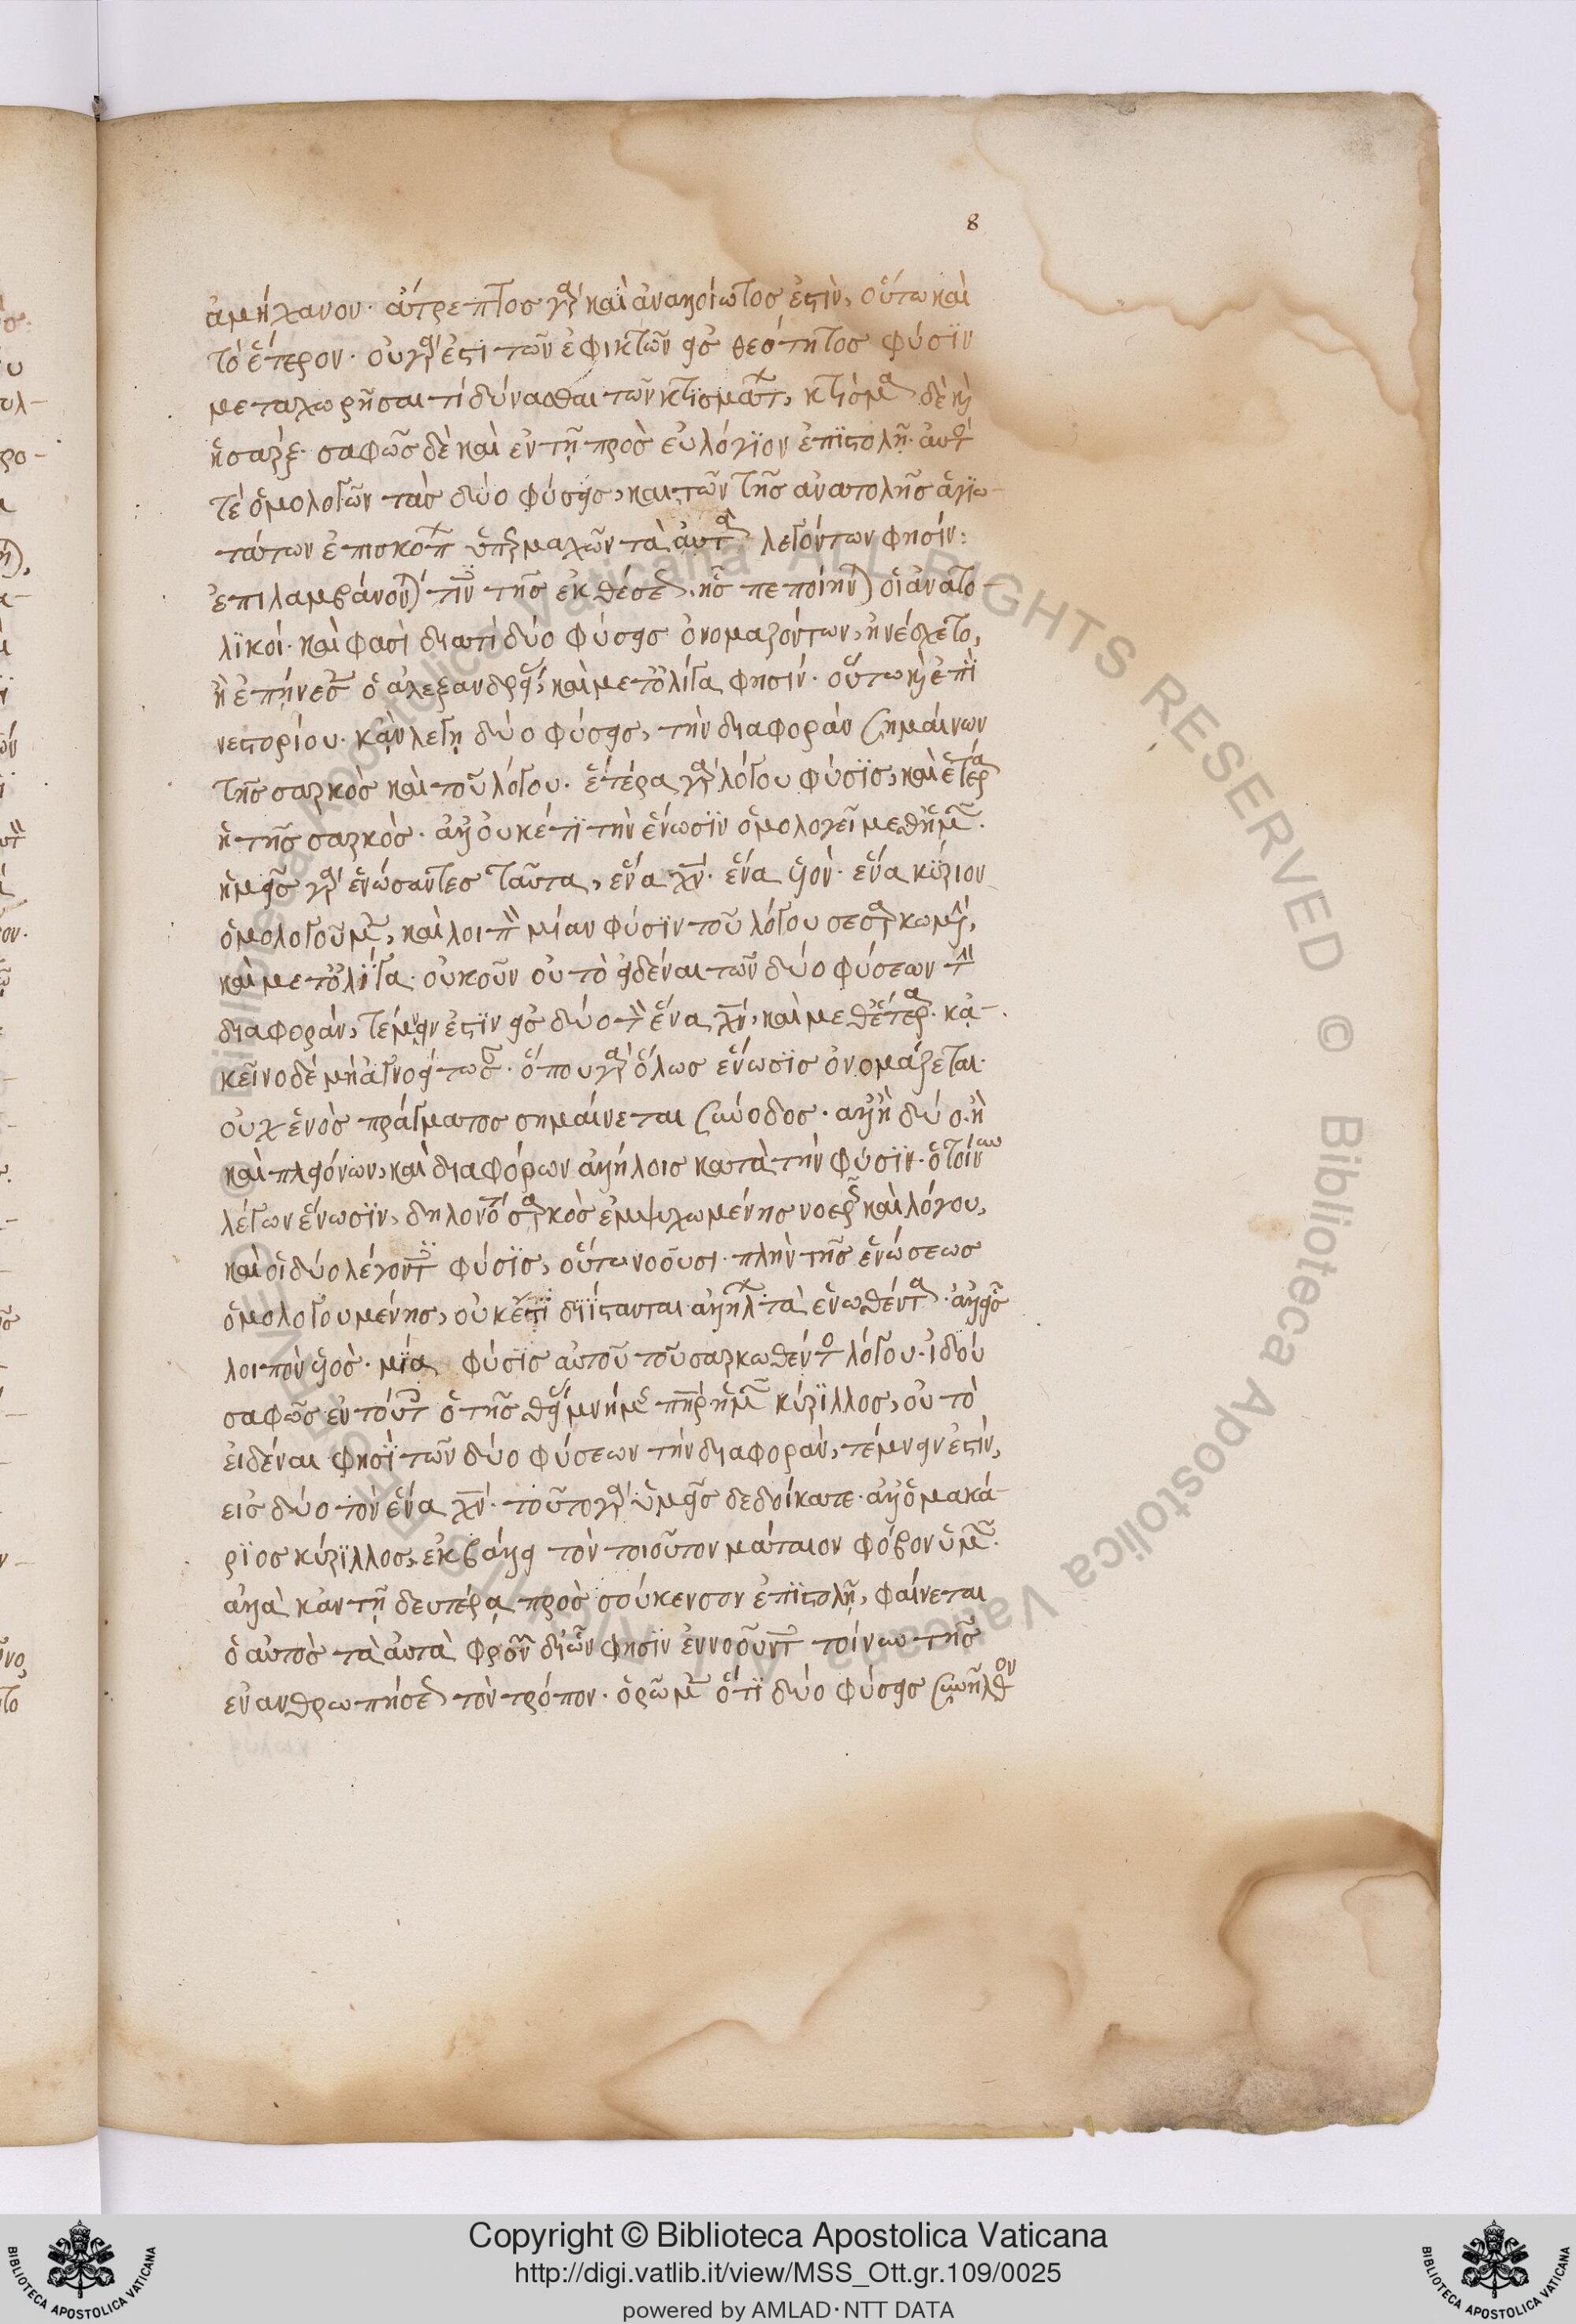 8
ἀμήχανον· ἄτρεπτος γὰρ καὶ ἀναλλοίωτος ἐστὶν, οὕτω καὶ
τὸ ἕτερον· οὐ γὰρ ἐστι τῶν ἐφικτῶν εἰς θεότητος φύσϊν
μεταχωρῆσαι τί δύνασθαι τῶν κτισμάτ, κτίσμα δὲ κὶ
ἡ σαρξ· σαφῶς δὲ καὶ ἐν τῇ πρὸς εὐλόγϊον ἐπϊστολῇ· αὐτό
τὲ ὁμολογῶν τὰς δύο φύσεις, καὶ τῶν τῆς ἀνατολῆς ἁγϊω-
τάτων ἐπισκόπ ὑπερμαχῶν τὰ αὐτὰ λεγόντων φησίν:
ἐπιλαμβάνονται τινὲς τῆς ἐκθέσεως ἧς πεποίηνται οἱ ἀνατο-
λϊκοί· καὶ φασὶ διατί δύο φύσεις ὀνομαζόντων, ἠνέσχετο,
ἢ ἐπῄνεσεν ὁ ἀλεξανδρείας, καὶ μετ ὀλίγα φησίν· οὕτω κὶ ἐπὶ
νεστορίου· κἂν λέγῃ δύο φύσεις, τὴν διαφορὰν σημαίνων
τῆς σαρκὸς καὶ τοῦ λόγου· ἑτέρα γὰρ λόγου φύσϊς, καὶ ἑτέρα
ἡ τῆς σαρκὸς· ἀλλ οὐκέτϊ τὴν ἕνωσϊν ὁμολογεῖ μεθ ἡμῶν·
ἡμεῖς γὰρ ἑνώσαντες ταῦτα, ἕνα χν· ἕνα υἱὸν· ἕνα κύριον
ὁμολογοῦμεν, καὶ λοιπὸν μίαν φύσϊν τοῦ λόγου σεσαρκωμένην,
καὶ μετ ὀλίγα· οὐκοῦν οὐ τὸ εἰδέναι τῶν δύο φύσεων τὴν
διαφορὰν, τέμνειν ἐστϊν εἰς δύο τὸν ἕνα χν, καὶ μεθ ἕτερα· κἀ-
κεῖνο δὲ μὴ ἀγνοείτωσαν· ὅπου γὰρ ὅλως ἕνωσϊς ὀνομάζεται·
οὐχ ἑνὸς πράγματος σημαίνεται σύνοδος· ἀλλ ἢ δύο ἢ
καὶ πλειόνων, καὶ διαφόρων ἀλλήλοις κατὰ τὴν φύσϊν· ὁ τοίνυν
λέγων ἕνωσϊν, δηλονότι σαρκὸς ἐμψυχωμένης νοερῶς καὶ λόγου,
καὶ οἱ δύο λέγοντες φύσϊς, οὕτω νοοῦσι· πλὴν τῆς ἑνώσεως
ὁμολογουμένης, οὐκέτϊ διΐστανται ἀλλήλων τὰ ἑνωθέντα· ἀλλ εἷς
λοιπὸν υἱὸς· μία φύσϊς αὐτοῦ τοῦ σαρκωθέντος λόγου· ἰδοὺ
σαφῶς ἐν τούτοις ὁ τῆς θείας μνήμης πηρ ἡμῶν κύριλλος, οὐ τὸ
εἰδέναι φησϊ τῶν δύο φύσεων τὴν διαφορὰν, τέμνειν ἐστὶν,
εἰς δύο τὸν ἕνα χν· τοῦτο γὰρ ὑμεῖς δεδοίκατε· ἀλλ ὁ μακά-
ρϊος κύρϊλλος, ἐκβάλλει τὸν τοιοῦτον μάταιον φόβον ὑμῶν·
ἀλλὰ κἂν τῇ δευτέρᾳ πρὸς σούκενσον ἐπϊστολῇ, φαίνεται
ὁ αὐτὸς τὰ αὐτὰ φρονῶν δι ὧν φησϊν ἐννοοῦντες τοίνυν τῆς
ἐνανθρωπήσεως τὸν τρόπον· ὁρῶμεν ὅτϊ δύο φύσεις συνῆλθον
Copyright © Biblioteca Apostolica Vaticana
http://digi.vatlib.it/view/MSS_Ott.gr.109/0025
powered by AMLAD·NTT DATA